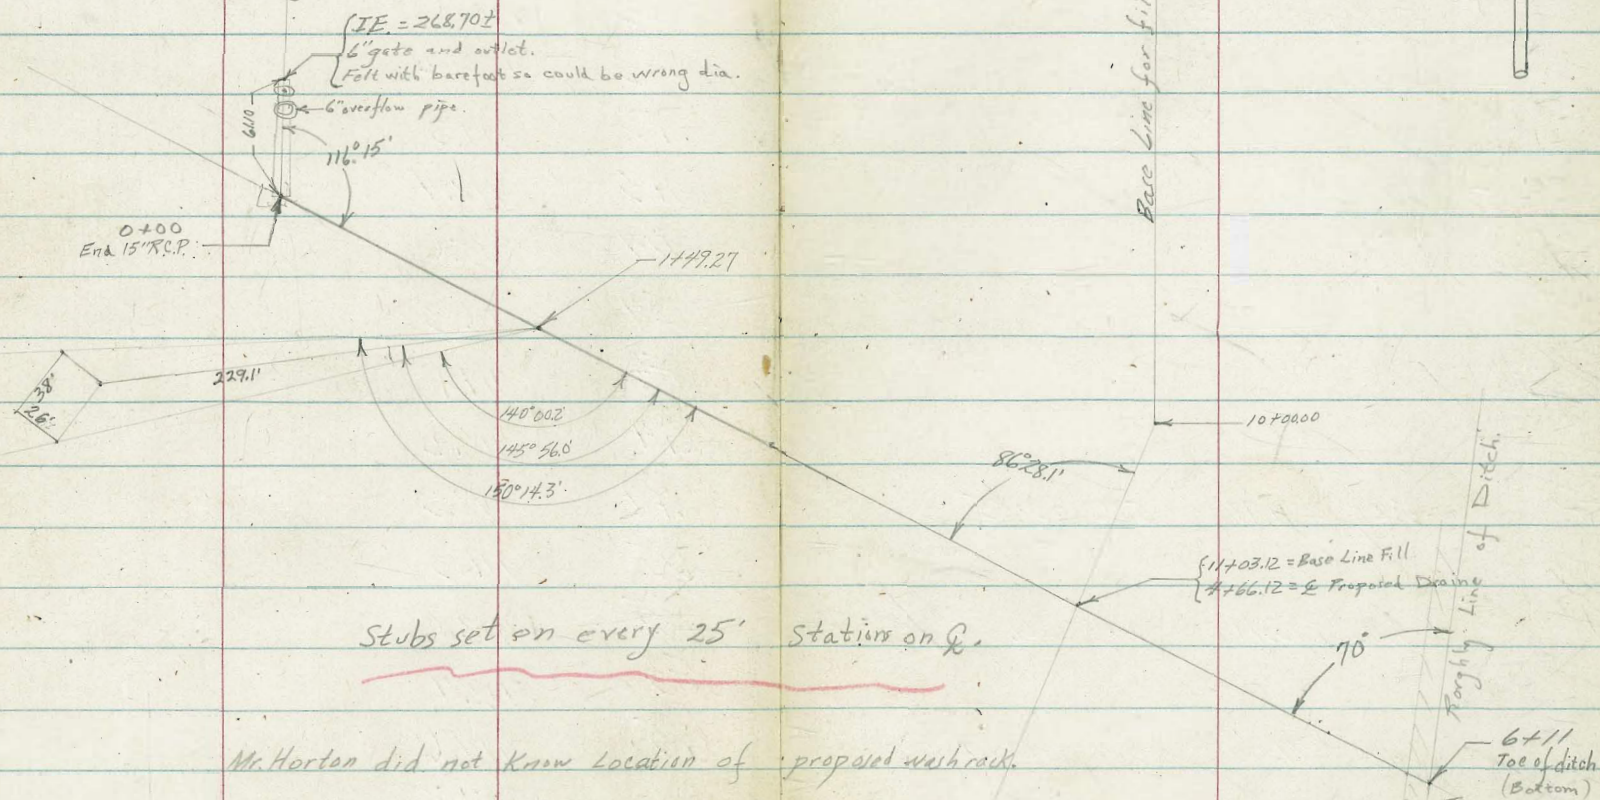 IE. = 268.70±
6" gate and outlet.
Felt with barefoot so could be wrong dia.
6" overflow pipe.
6.10
116° 15'
0+00
End 15" R.C.P.
1+49.27
229.1'
38'
26'
140° 00.2'
145° 56.0'
150° 14.3'
Base Line for fil
10+00.00
86° 28.1'
11+03.12 = Base Line Fill
4+66.12 = ℄ Proposed Draine
70°
Roughly Line of Ditch.
Stubs set on every 25' Stations on ℄.
6+11
Toe of ditch
(Bottom)
Mr. Horton did not Know Location of proposed wash rack.